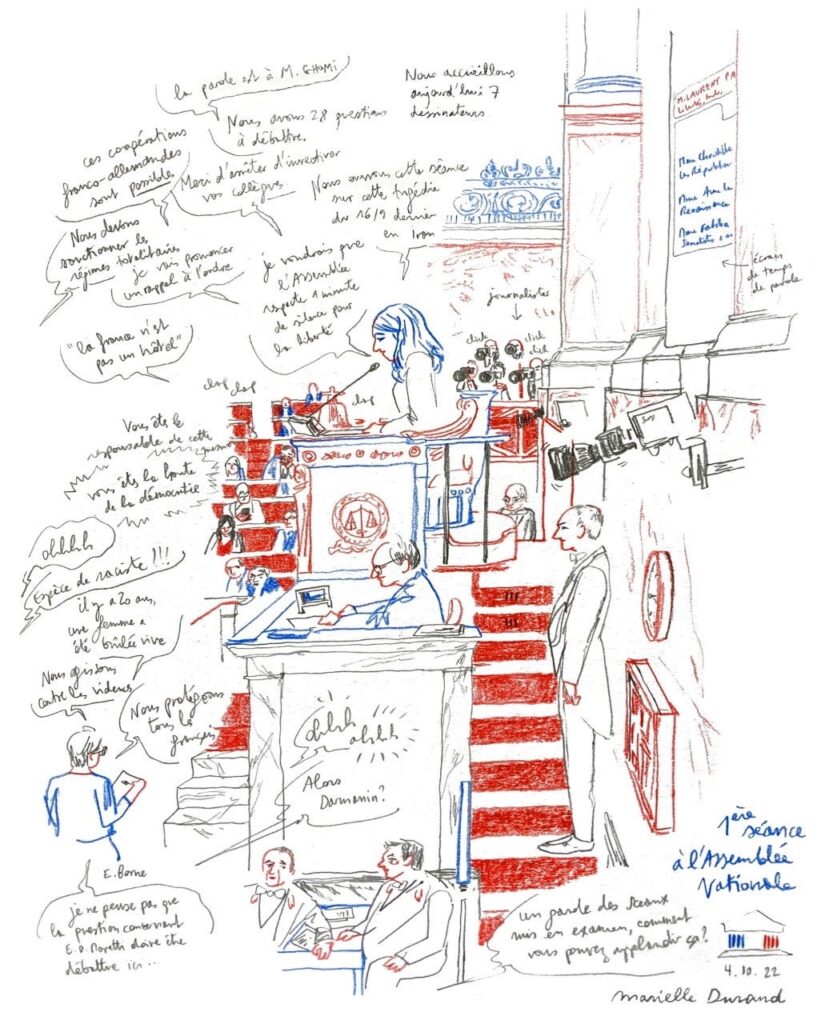 la parole est à M. GHOMI
Nous accueillons
aujourd'hui 7
dessinateurs.
Nous avons 28 questions
à débattre.
ces coopérations
franco-allemandes
sont possibles
Merci d'arrêter d'invectiver
vos collègues
Nous ouvrons cette séance
sur cette tragédie
du 16/9 dernier
en Iran
Nous devons
sanctionner les
régimes totalitaires
je vais prononcer
un rappel à l'ordre
je voudrais que
l'Assemblée
respecte 1 minute
de silence pour
la liberté
"la france n'est
pas un hôtel"
M. LAURENT PA
Mme Christelle
Les Républicai
Mme Anne Le
Renaissance
Mme
écran
de temps
de parole
journalistes
click
click
click
clap
clap
clap
Vous êtes le
responsable de cette
vous êtes la honte
de la démocratie
ohhhh
Espèce de raciste !!!
il y a 20 ans,
une femme a
été brûlée vive
Nous agissons
contre les violences
Nous protégeons
tous les
français
ohhhh
ohhhh
Alors
Darmanin?
E. Borne
je ne pense pas que
la question concernant
E. D. Moretti doive être
débattue ici ...
un garde des sceaux
mis en examen, comment
vous pouvez applaudir ça?
1ère
séance
à l'Assemblée
Nationale
4.10.22
Marielle Durand